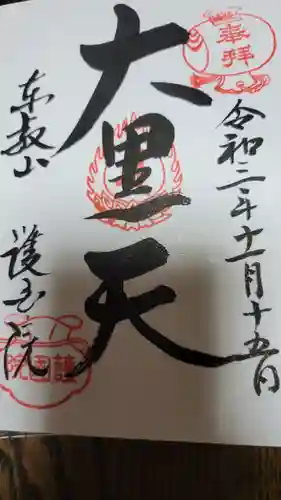 奉拝
令和三年十一月十五日
大黒天
東叡山
護国院
護国院